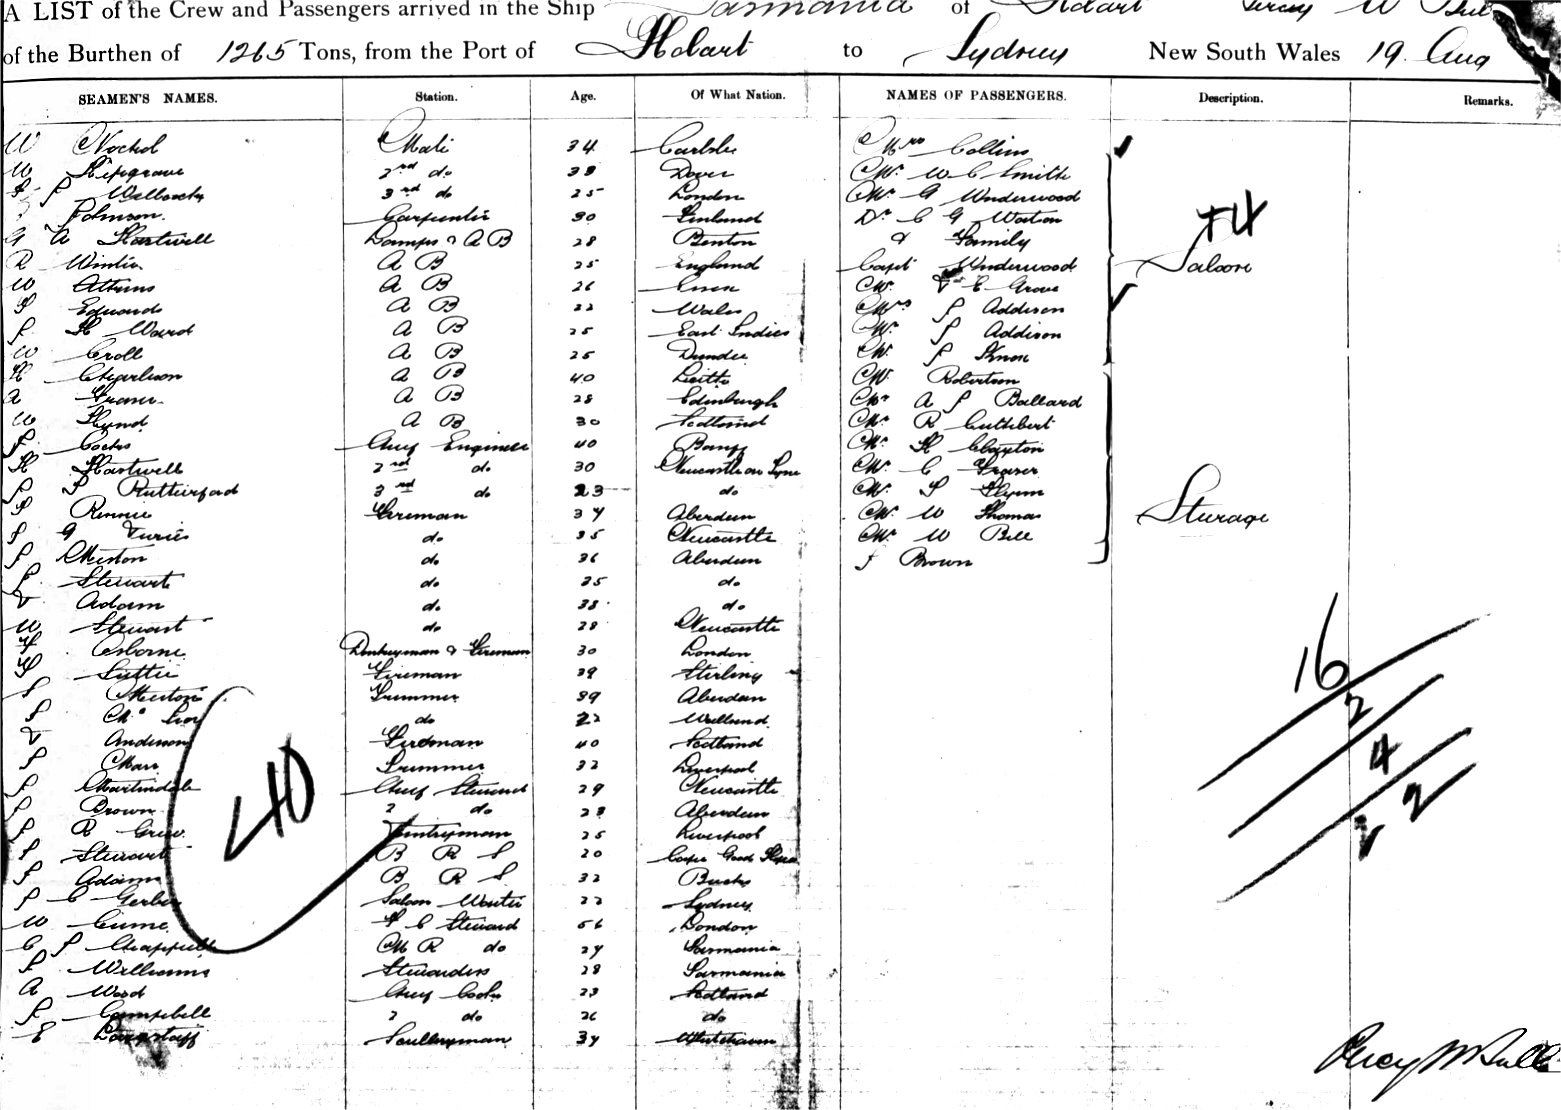 A LIST of the Crew and Passengers arrived in the Ship Tasmania of Hobart Percy W Bull
of the Burthen of 1265 Tons, from the Port of Hobart to Sydney New South Wales 19 Aug
SEAMEN'S NAMES. Station. Age. Of What Nation. NAMES OF PASSENGERS. Description. Remarks.
W Nockel Mate 34 Carlisle Mrs Collins
W 2nd do 38 Dover Mr W C Smith
3rd do 25 London Mr G Underwood
Johnson Carpenter 30 Finland Dr C G Watson
G A Hartwell Lamps & A B 28 Benton & Family 44
R Winter A B 25 England Capt Underwood Saloon
W Atkins A B 26 Mr E Grove
Edwards A B 22 Wales Mrs J Addison
J H Ward A B 25 East Indies Mr J Addison
W Croll A B 25 Dundee Mr J Knox
H Charlson A B 40 Leith Mr Robertson
A Fraser A B 28 Edinburgh Mr A J Ballard
W Hynd A B 30 Scotland Mr R Cuthbert
J Cocks Chief Engineer 40 Banff Mr H Clayton
H Hartwell 2nd do 30 Newcastle on Tyne Mr C Fraser
J Rutherford 3rd do 23 do Mr S Flynn
J Rennie Fireman 34 Aberdeen Mr W Thomas Steerage
J G do 35 Newcastle Mr W Bell
J Meston do 36 Aberdeen J Brown
J Stewart do 25 do
Adam do 38 do
W Stewart do 28 Newcastle
Osborne Donkeyman & Fireman 30 London 16
Suttie Fireman 39 Stirling
J Meston Trimmer 39 Aberdeen 2
J do 22
Anderson Fireman 40 Scotland 4
J Marr Trimmer 32 Liverpool
J Martindale Chief Steward 29 Newcastle 2
J Brown 2 do 28 Aberdeen
40
J R Grew Pantryman 25 Liverpool
J Stewart B R S 20 Cape Good Hope
J Adams B R S 32 Bucks
J C Gerber Saloon Waiter 22 Sydney
W F C Steward 56 London
C J Chappell M R do 24 Tasmania
J Williams Stewardess 28 Tasmania
A Wood Chief Cook 23 Scotland
J Campbell 2 do 26 do
E Longstaff Sculleryman 34 Whitehaven
Percy W Bull